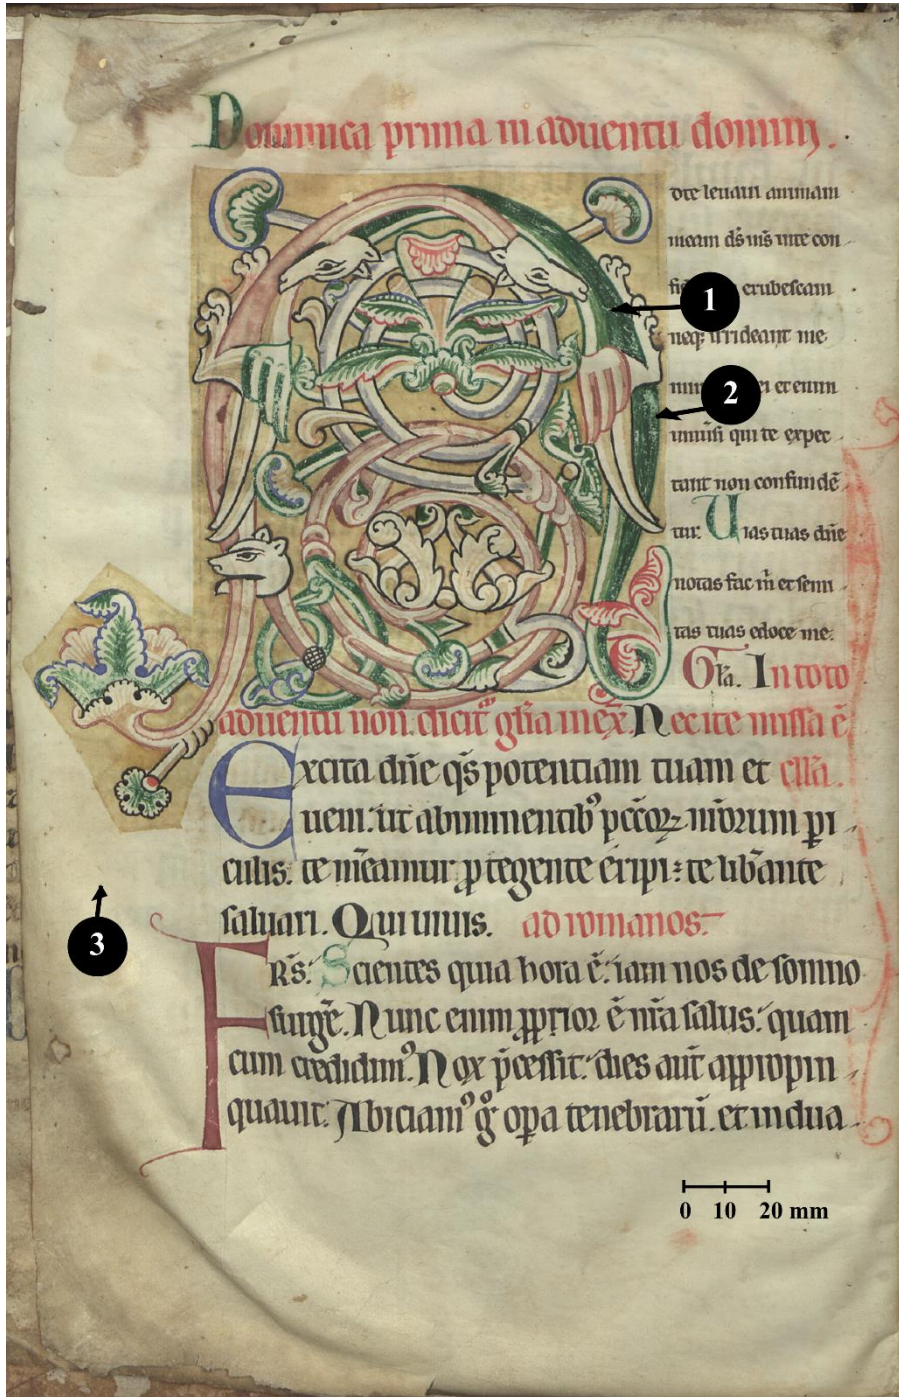 Dominica prima in aduentu domini.
A
dte leuaui animam
meam ds̄ ms̄ in te con
erubescam
neq; irrideant me
et enim
uniūsi qui te expec
tant non confundē
tur. Uias tuas dn̄e
notas fac m̄ et semi
tas tuas edoce me.
Gl̄a. In toto
aduentu non dicit᷑ gl̄ia in ex̄. Nec ite missa ē.
Excita dn̄e qs̄ potentiam tuam et ella.
ueni. ut ab imminentib᷒ pcc̄oꝝ nr̄orum pi
culis. te m̄eamur ꝓtegente eripi: te lib̄ante
saluari. Qui uiuis. ad romanos.
FRS̄. Scientes quia hora ē. iam nos de somno
surgē. Nunc enim ꝓprior ē nr̄a salus. quam
cum credidim᷒. Nox p̄cessit. dies aut̄ appropin
quauit. Abiciam᷒ gͦ oꝑa tenebrarū. et indua
1
2
3
0 10 20 mm